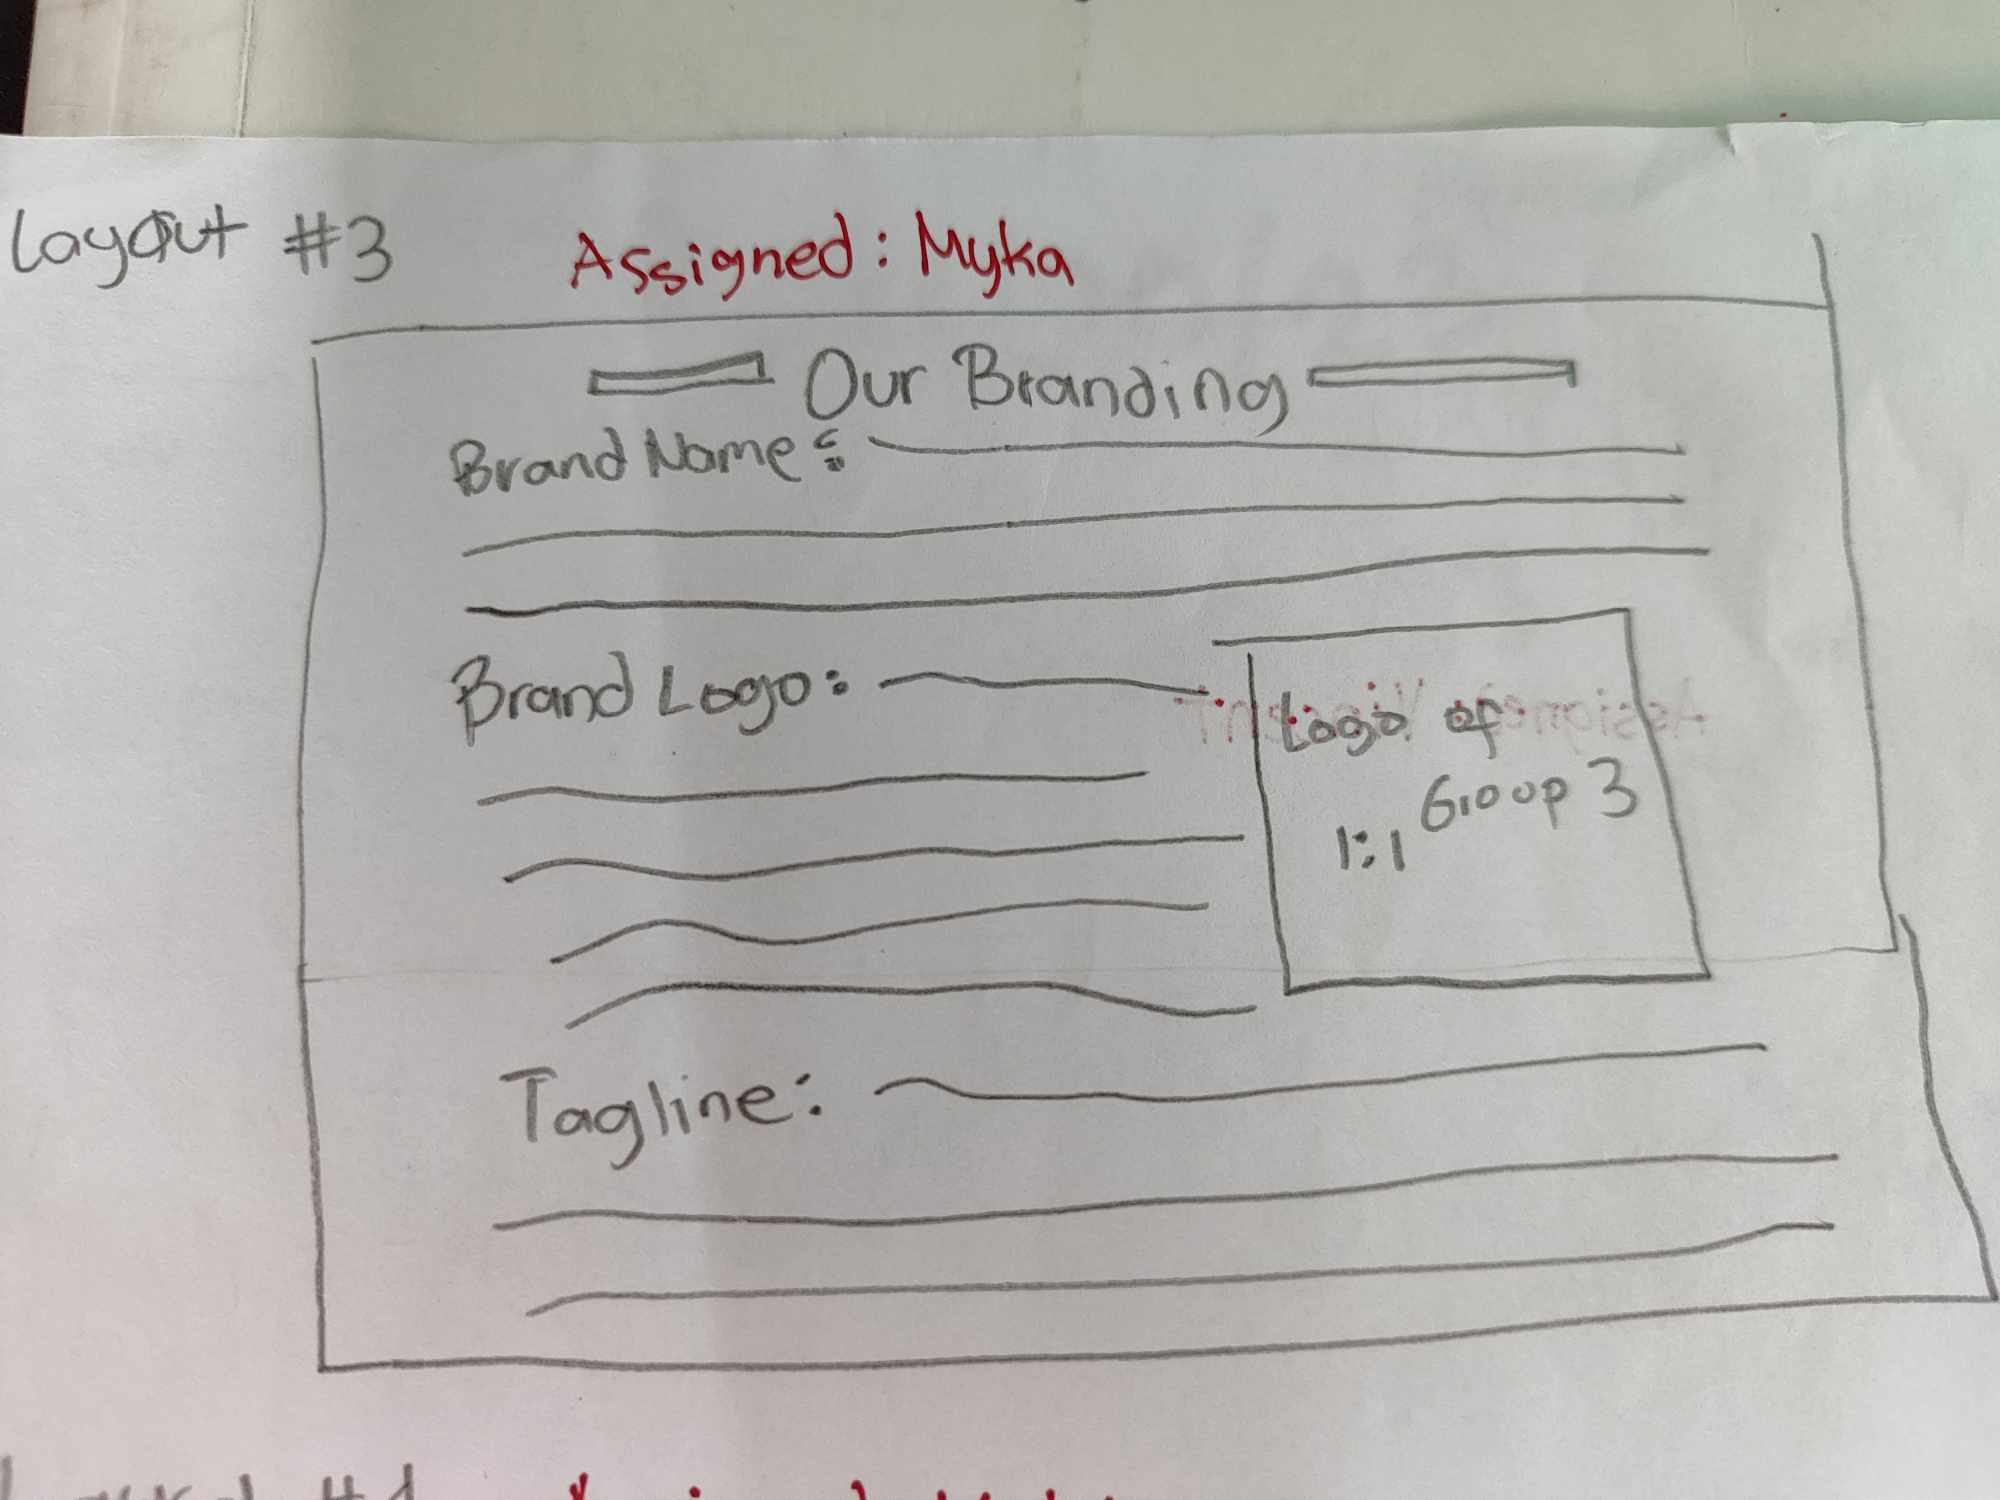 Layout #3
Assigned: Myka
Our Branding
Brand Name:
Brand Logo:
Logo of
Group 3
1:1
Tagline: